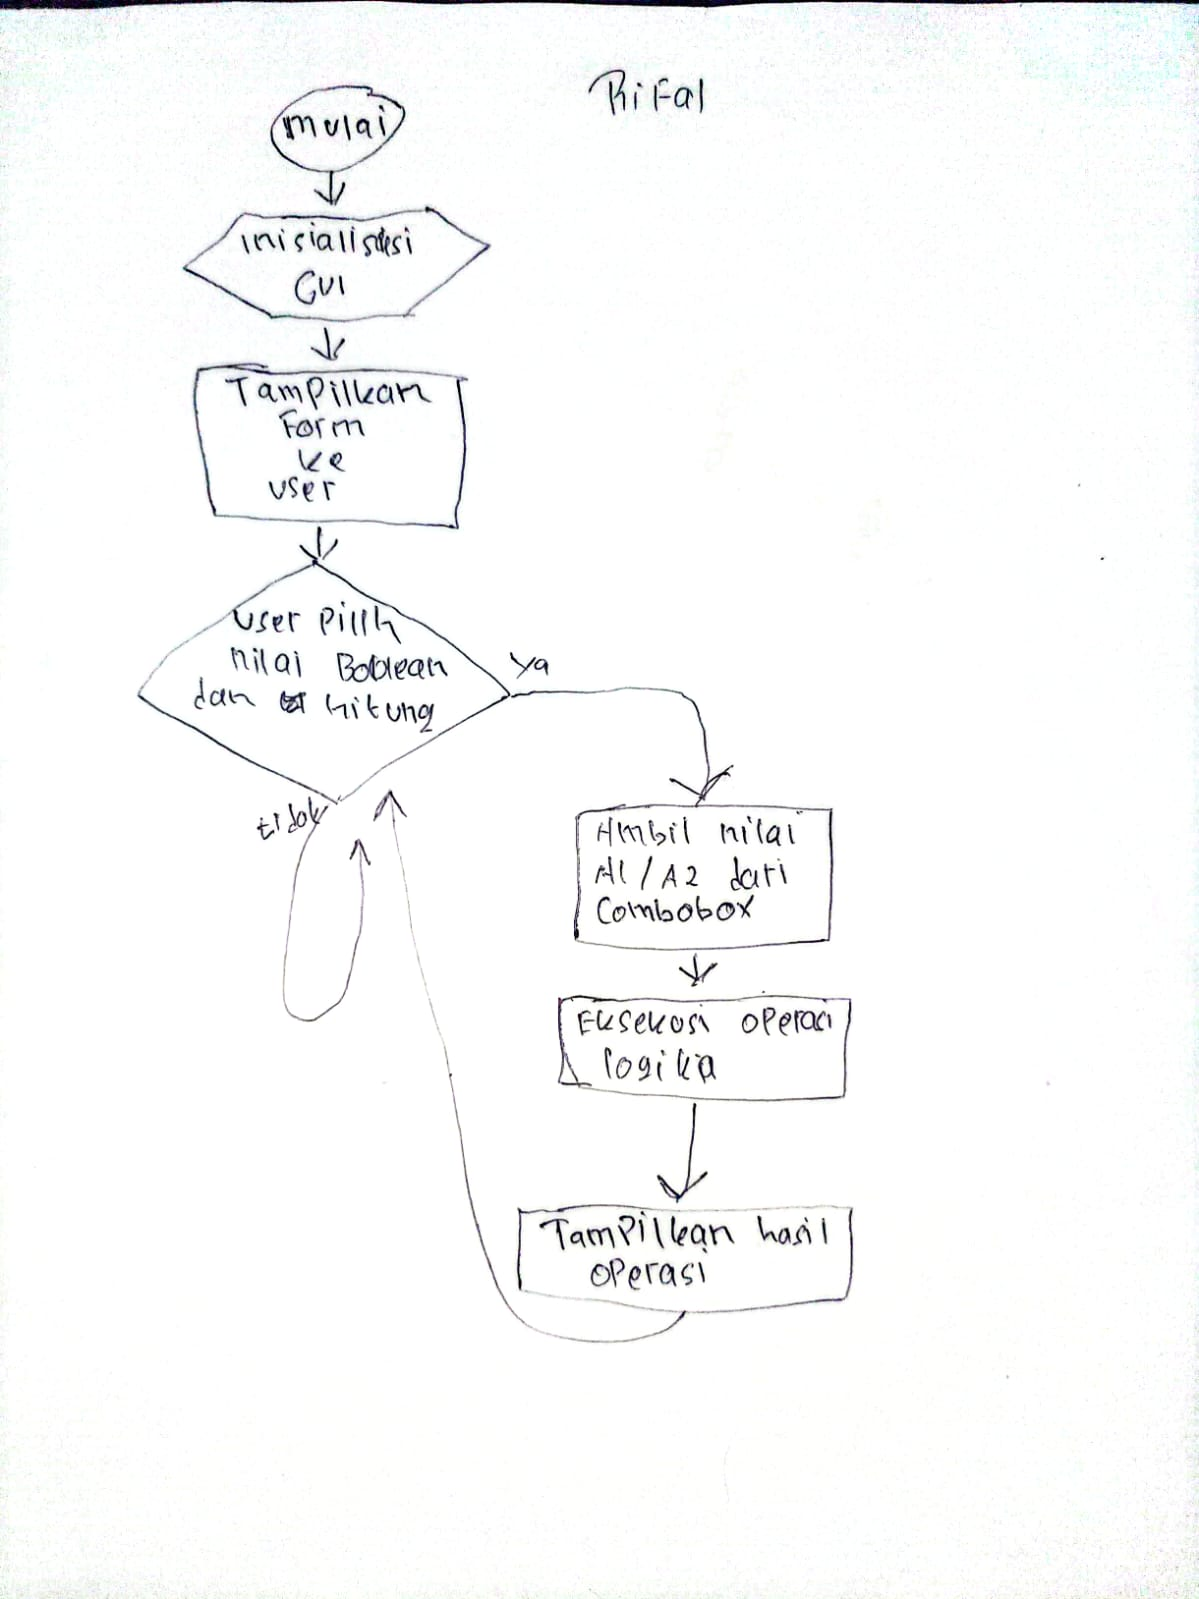 Rifal
mulai
inisialisasi
GUI
Tampilkan
Form
ke
user
user pilih
nilai Boolean
dan hitung
ya
tidak
Ambil nilai
A1/A2 dari
Combobox
Eksekusi operasi
logika
Tampilkan hasil
operasi